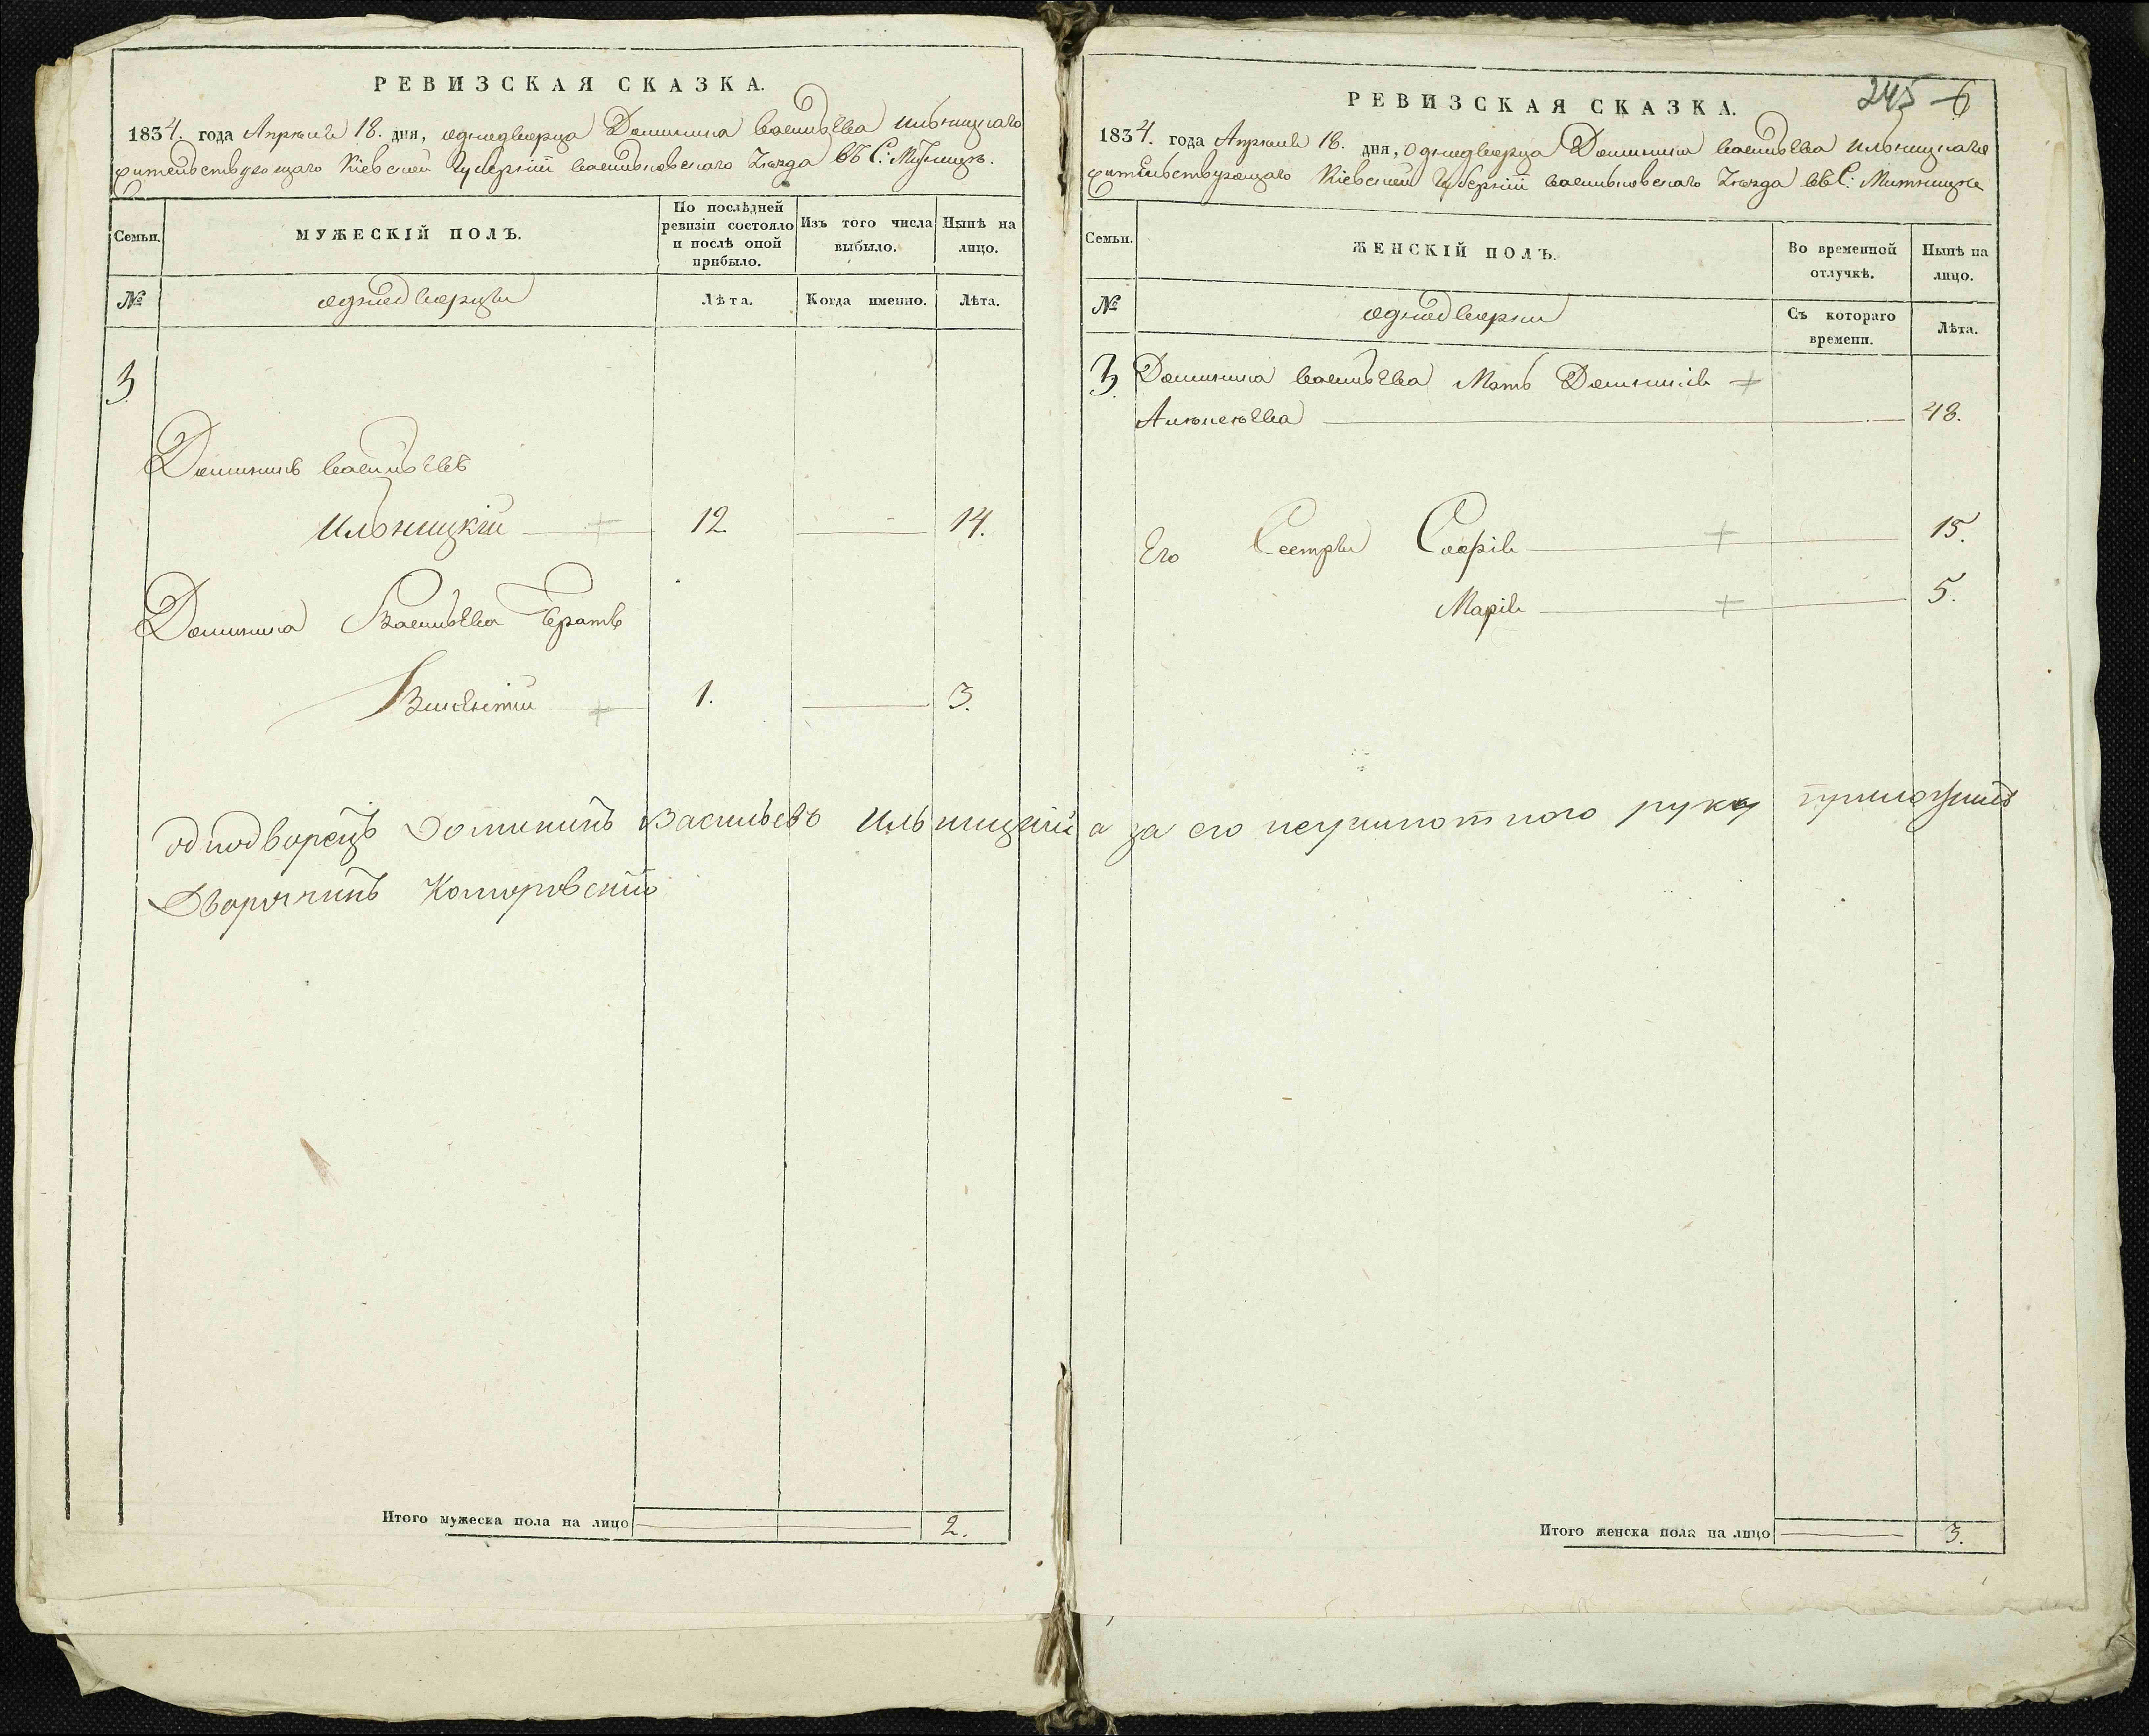 РЕВИЗСКАЯ СКАЗКА.
1834. года Апрѣля 18. дня, однодворца Доминика Васильева Ильницкаго
жительствующаго Кіевской Губерніи Васильковскаго уѣзда въ С: Митницѣ.
Семьи.
МУЖЕСКІЙ ПОЛЪ.
По послѣдней
ревизіи состояло
и послѣ оной
прибыло.
Изъ того числа
выбыло.
Нынѣ на
лицо.
№
однодворцы
Лѣта.
Когда именно.
Лѣта.
3
Доминикъ Васильевъ
Ильницкій 12. 14.
Доминика Васильева братъ
Викентій 1. 3.
однодворецъ Доминикъ Васильевъ Ильницкій а за его неграмотного руку приложилъ
Дворянинъ Коморовскій
Итого мужеска пола на лицо 2.
245
6
РЕВИЗСКАЯ СКАЗКА.
1834. года Апрѣля 18. дня, однодворца Доминика Васильева Ильницкаго
жительствующаго Кіевской Губерніи Васильковскаго уѣзда въ С: Митницѣ
Семьи.
ЖЕНСКІЙ ПОЛЪ.
Во временной
отлучкѣ.
Нынѣ на
лицо.
№
однодворки
Съ котораго
времени.
Лѣта.
3. Доминика Васильева Мать
Алексѣева 48.
Его Сестры Софія 15.
Марія 5.
Итого женска пола на лицо 3.